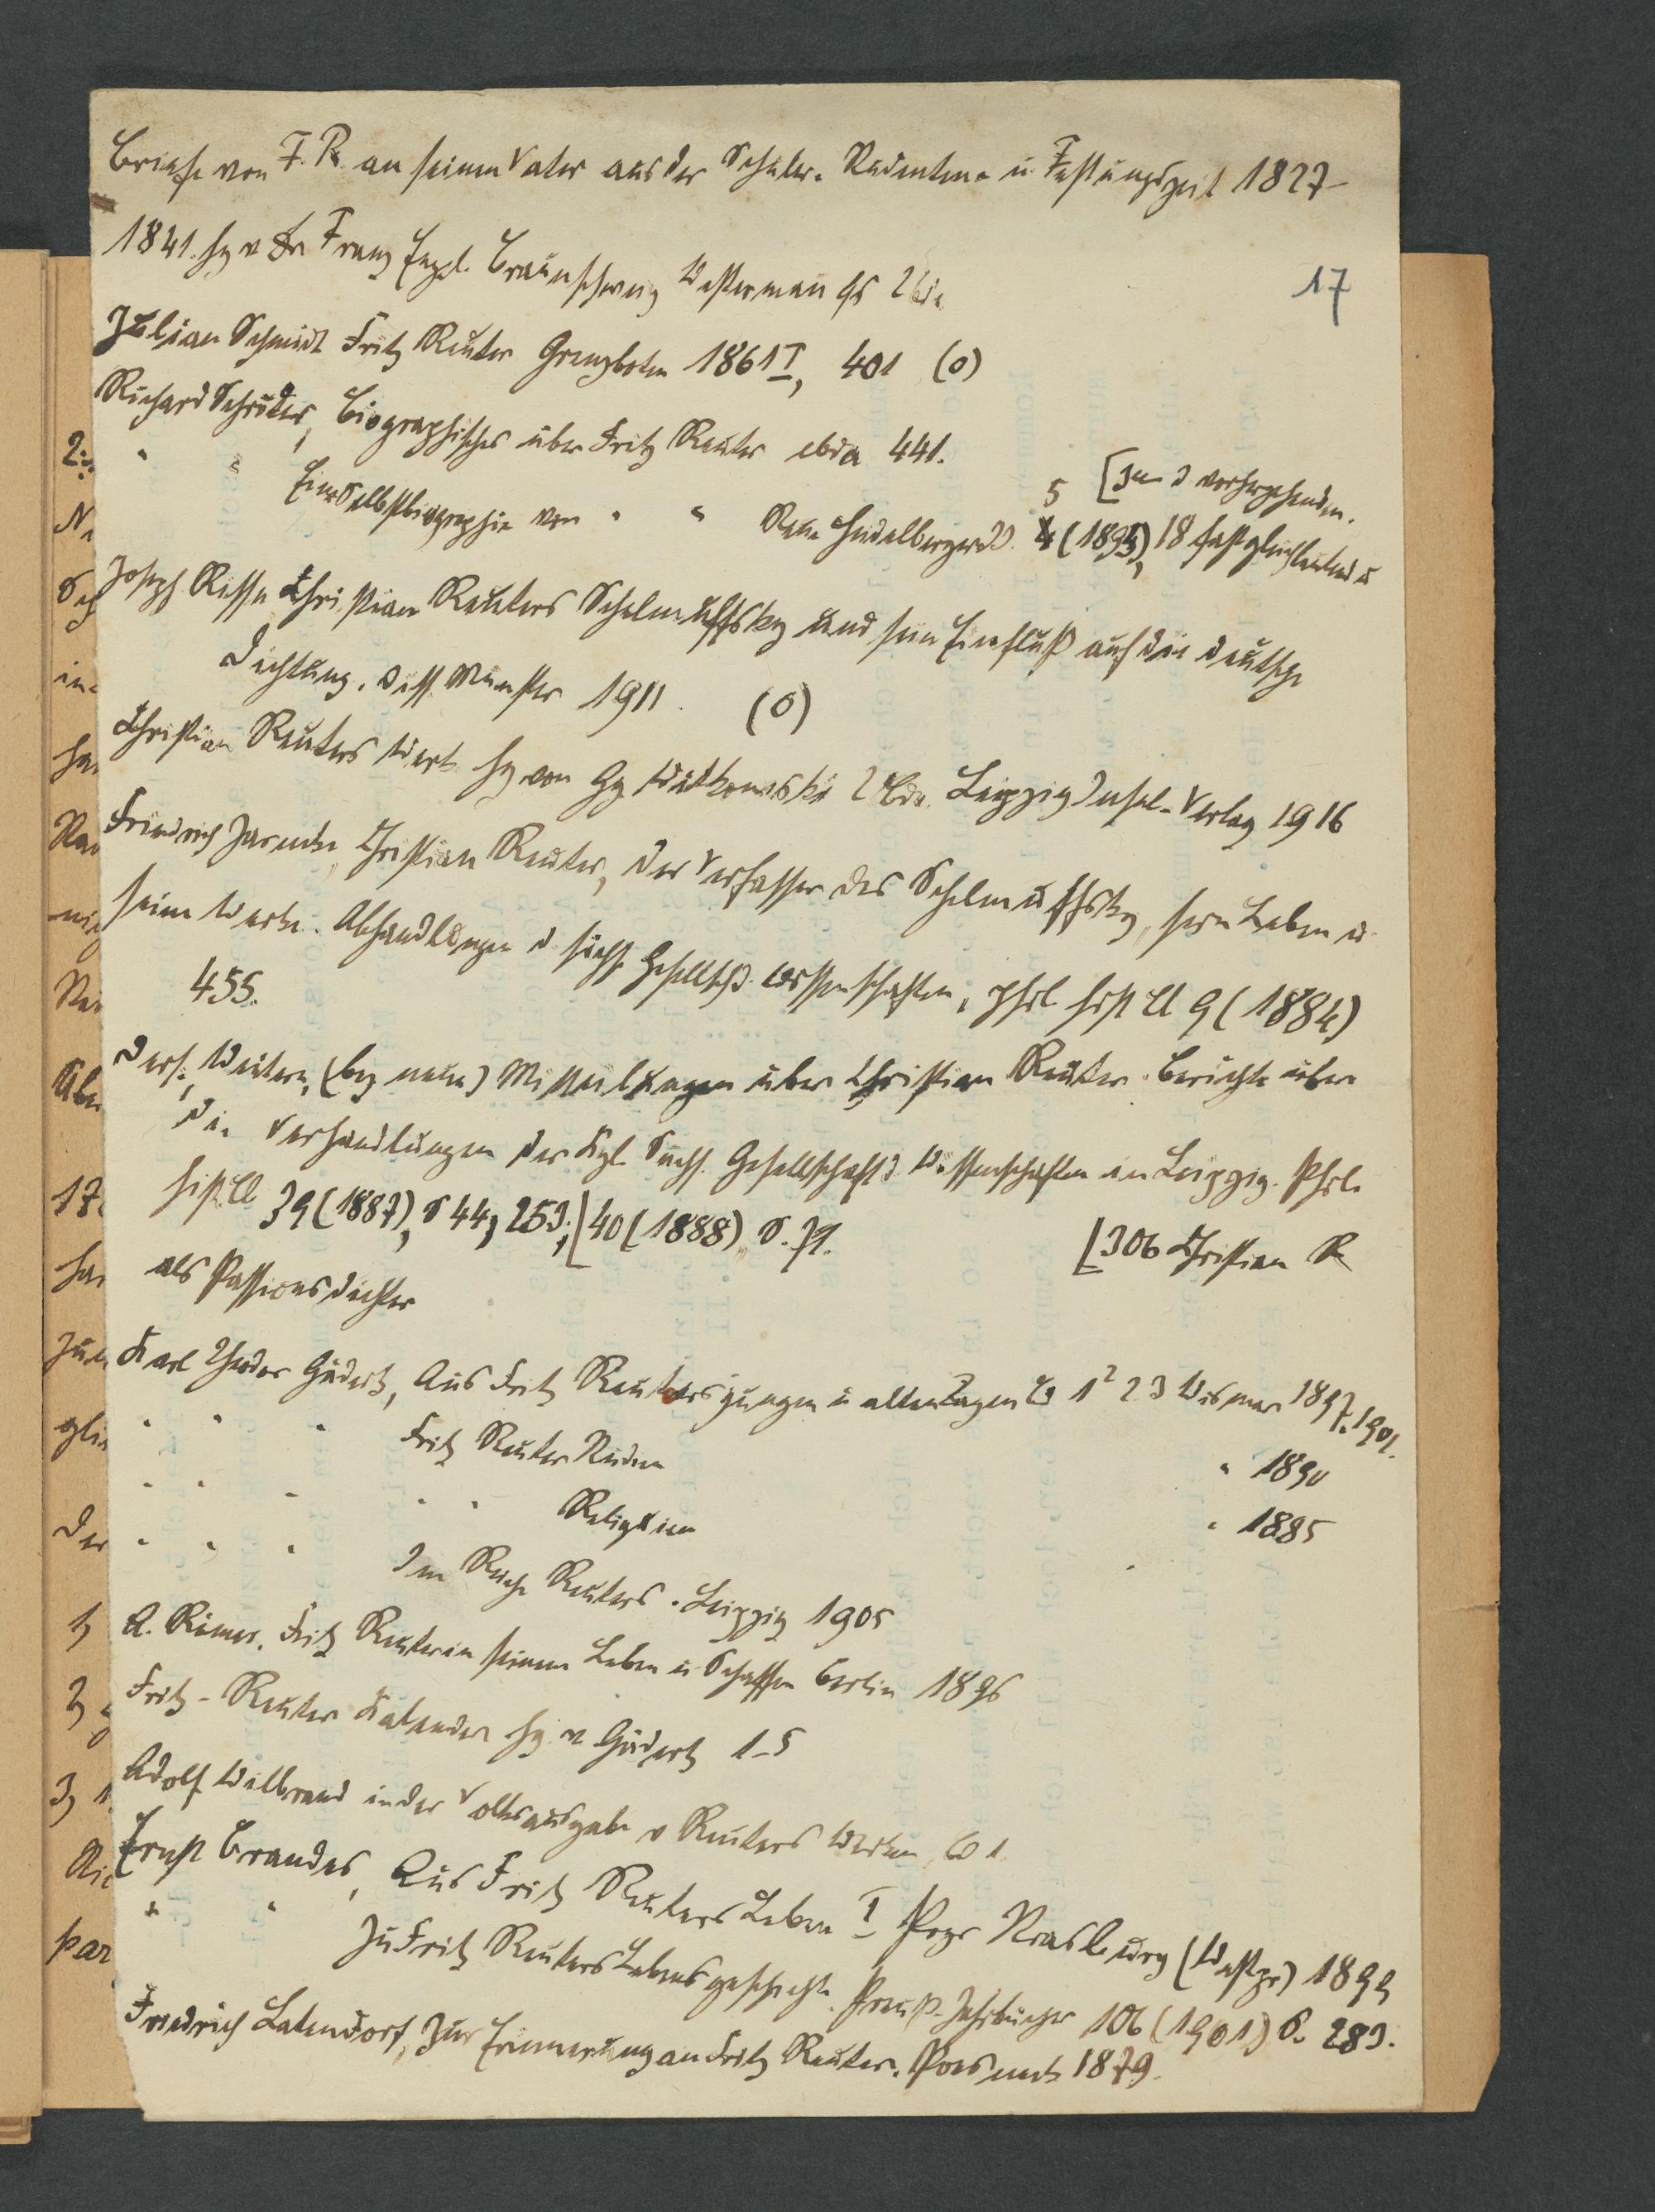 Briefe von F. R. an seinen Vater aus der Schüler- Studenten- u Festungszeit 1827-
1841. hg v Dr Franz Engel. Braunschweig Westerman 2 Bde
17
Julian Schmidt Fritz Reuter Grenzboten 1861 I, 401 (o)
Richard Schröder, Biographisches über Fritz Reuter ebda 441.
[zu d vorhergehenden.
" " Eine Selbstbiographie von " " Neue Heidelberger 5 (1895), 18 fast gleichlautend
Joseph Risse Christian Reuters Schelmuffsky und sein Einfluß auf die deutsche
Dichtung. Diss. Münster 1911. (o)
Christian Reuters Werk hg von Gg Witkowski 2 Bde. Leipzig Insel-Verlag 1916
Friedrich Zarncke, Christian Reuter, der Verfasser des Schelmuffsky, sein Leben u
seine Werke. Abhandlungen d sächs Gesellsch d. Wissenschaften, phil hist Cl 9 (1884)
455.
Ders., Weitere (bez neue) Mitteilungen über Christian Reuter. Berichte über
die Verhandlungen der Kgl. Sächs. Gesellschaft d. Wissenschaften in Leipzig. Phil.
hist. Cl 39 (1887), S 44, 253; [40 (1888) S. 71.
[306 Christian R
als Passionsdichter
Karl Theodor Gädertz, Aus Fritz Reuters jungen u alten Tagen Bd 1² 2 3 Wismar 1897. 1901.
" " " Fritz Reuter Studien " 1890
" " " " " Reliquien " 1885
" " " Im Reiche Reuters. Leipzig 1905
A. Römer, Fritz Reuter in seinem Leben u Schaffen Berlin 1896
Fritz-Reuter Kalender hg v Gädertz 1-5
Adolf Wilbrand in der Volksausgabe v Reuters Werken, Bd 1
Ernst Brandes, Aus Fritz Reuters Leben I Progr Strasburg (Westpr) 1899
" " Zu Fritz Reuters Lebensgeschichte. Preuß. Jahrbücher 106 (1901) S. 283.
Friedrich Latendorf, Zur Erinnerung an Fritz Reuter. Poesneck 1879.